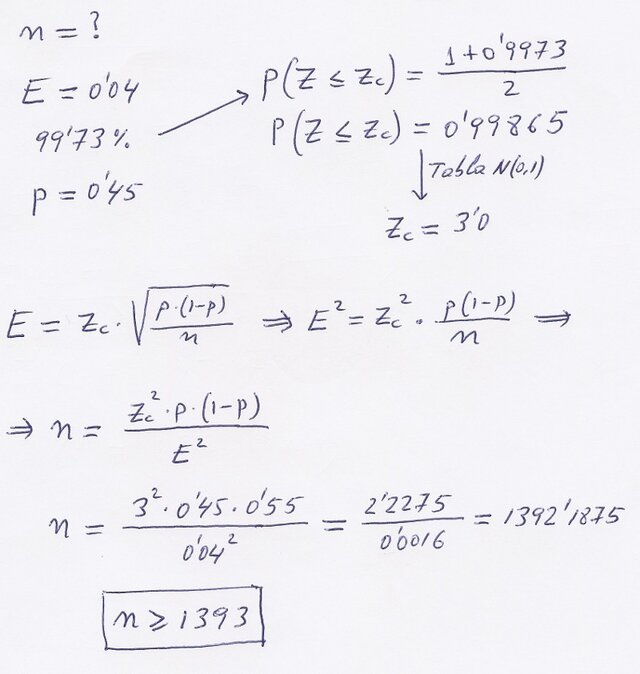 n = ?
E = 0'04
99'73%
p = 0'45
P(Z ≤ Zc) = (1+0'9973)/2
P(Z ≤ Zc) = 0'99865
↓ Tabla N(0,1)
Zc = 3'0
E = Zc · √(p·(1-p)/n) ⇒ E² = Zc² · p(1-p)/n ⇒
⇒ n = Zc² · p · (1-p)/E²
n = 3² · 0'45 · 0'55/0'04² = 2'2275/0'0016 = 1392'1875
n ≥ 1393